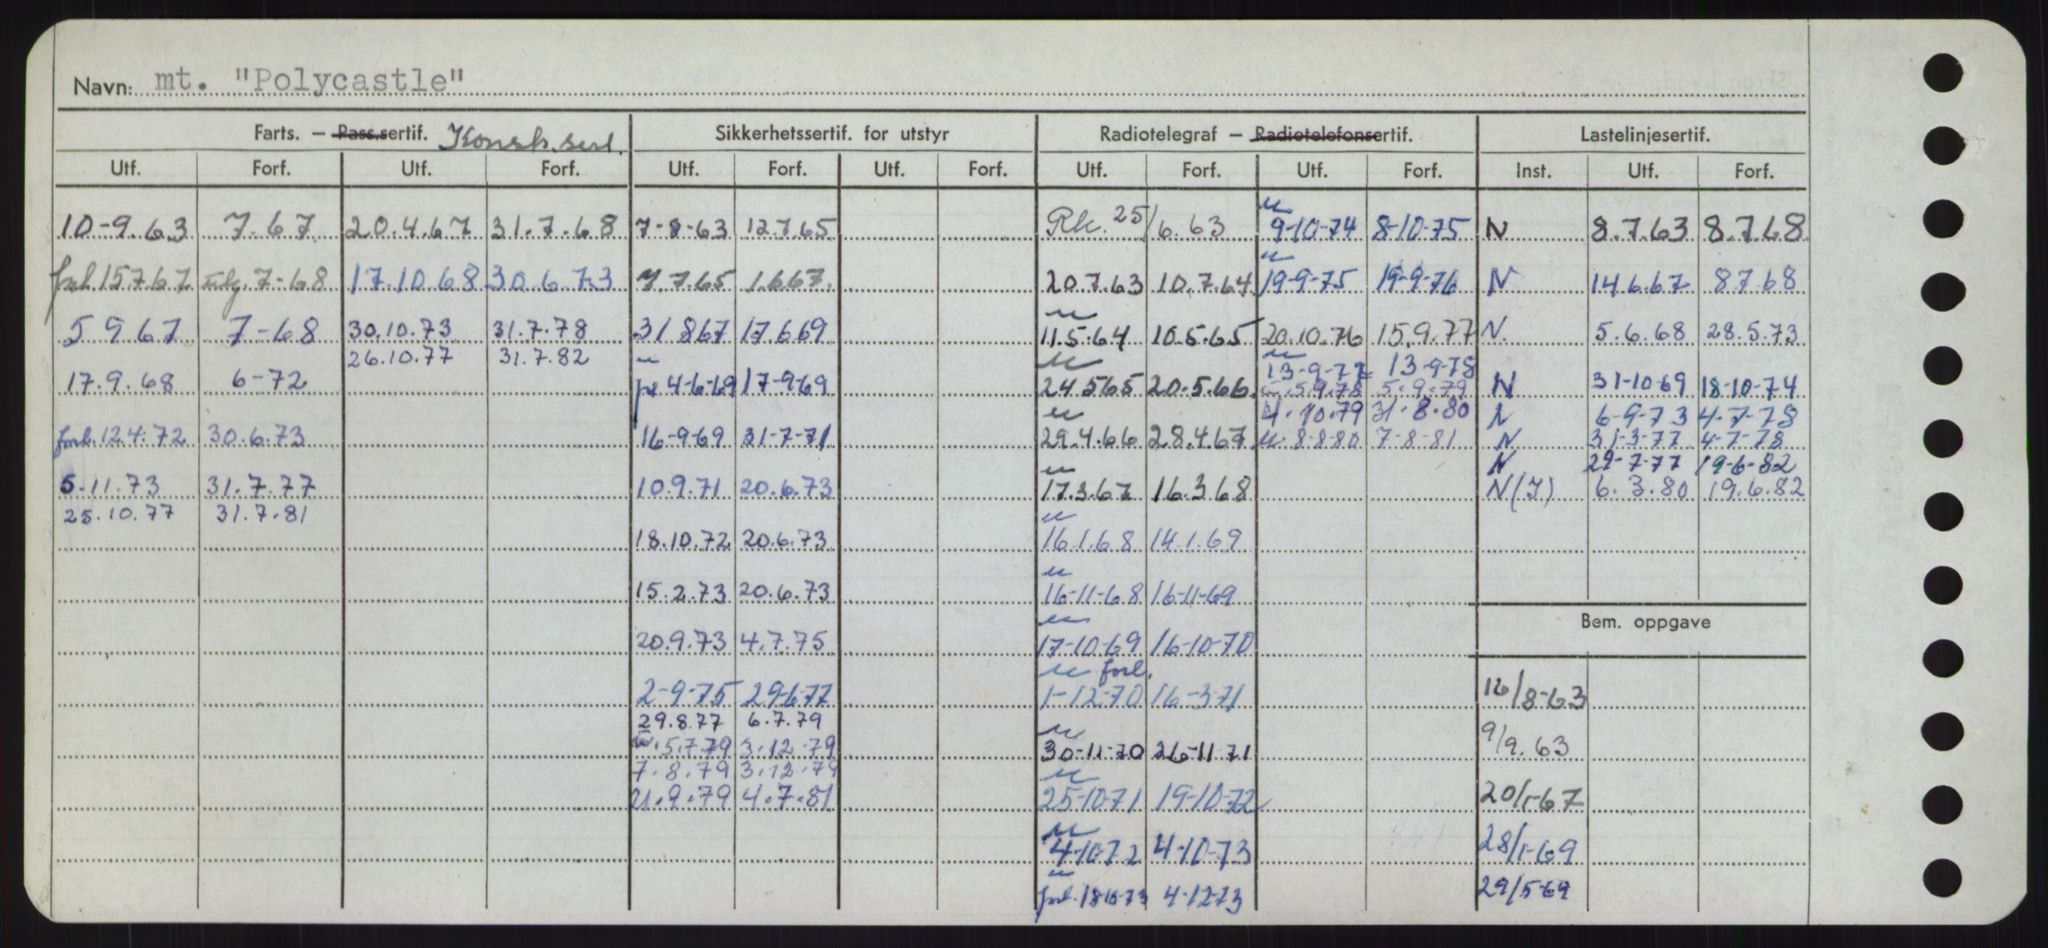 Navn: mt. "Polycastle"
Farts. – Pass.sertif. Konstr. sert. Sikkerhetssertif. for utstyr Radiotelegraf – Radiotelefonsertif. Lastelinjesertif.
Utf. Forf. Utf. Forf. Utf. Forf. Utf. Forf. Utf. Forf. Utf. Forf. Inst. Utf. Forf.
10-9.63 7.67 20.4.67 31.7.68 7-8-63 12.7.65 Rk. 25/6.63 " 9-10-74 8-10-75 N 8.7.63 8.7.68
forl. 15.7.67 7-68 17.10.68 30.6.73 7.7.65 1.6.67. 20.7.63 10.7.64 " 19-9-75 19-9-76 N 14.6.67 8.7.68
5.9.67 7-68 30.10.73 31.7.78 31.8.67 17.6.69 " 11.5.64 10.5.65 20.10.76 15.9.77 N. 5.6.68 28.5.73
26.10.77 31.7.82
17.9.68 6-72 4-6-69 17-9-69 " 24.5.65 20.5.66. " 13-9-77 13-9-78 N 31-10-69 18-10-74
" 5.9.78 5.9.79
4.10.79 31.8.80 N 6-9-73 4-7-78
forl. 12.4.72 30.6.73 16-9-69 31-7-71 " 29.4.66 28.4.67. " 8-8-80 7-8-81 N 31-3-77 4-7-78
N 29-7-77 19-6-82
5-11.73 31.7.77 10.9.71 20.6.73 " 17.3.67 16.3.68 N(I) 6.3.80 19.6.82
25.10.77 31.7.81
18.10.72 20.6.73 " 16.1.68 14.1.69
15.2.73 20.6.73 " 16-11-68 16-11-69
Bem. oppgave
20.9.73 4.7.75 " 17-10-69 16-10-70
2-9-75 29-6-77 " forl. 1-12-70 16-3-71 16/8-63
29.8.77 6.7.79
5.7.79 3.12.79 " 30-11-70 26-11-71 9/9.63
7.8.79 3.12.79
21.9.79 4.7.81 " 25-10-71 19-10-72 20/1-67
" 4-10-72 4-10-73 28/1-69
" forl. 18-10-73 4-12-73 29/5-69